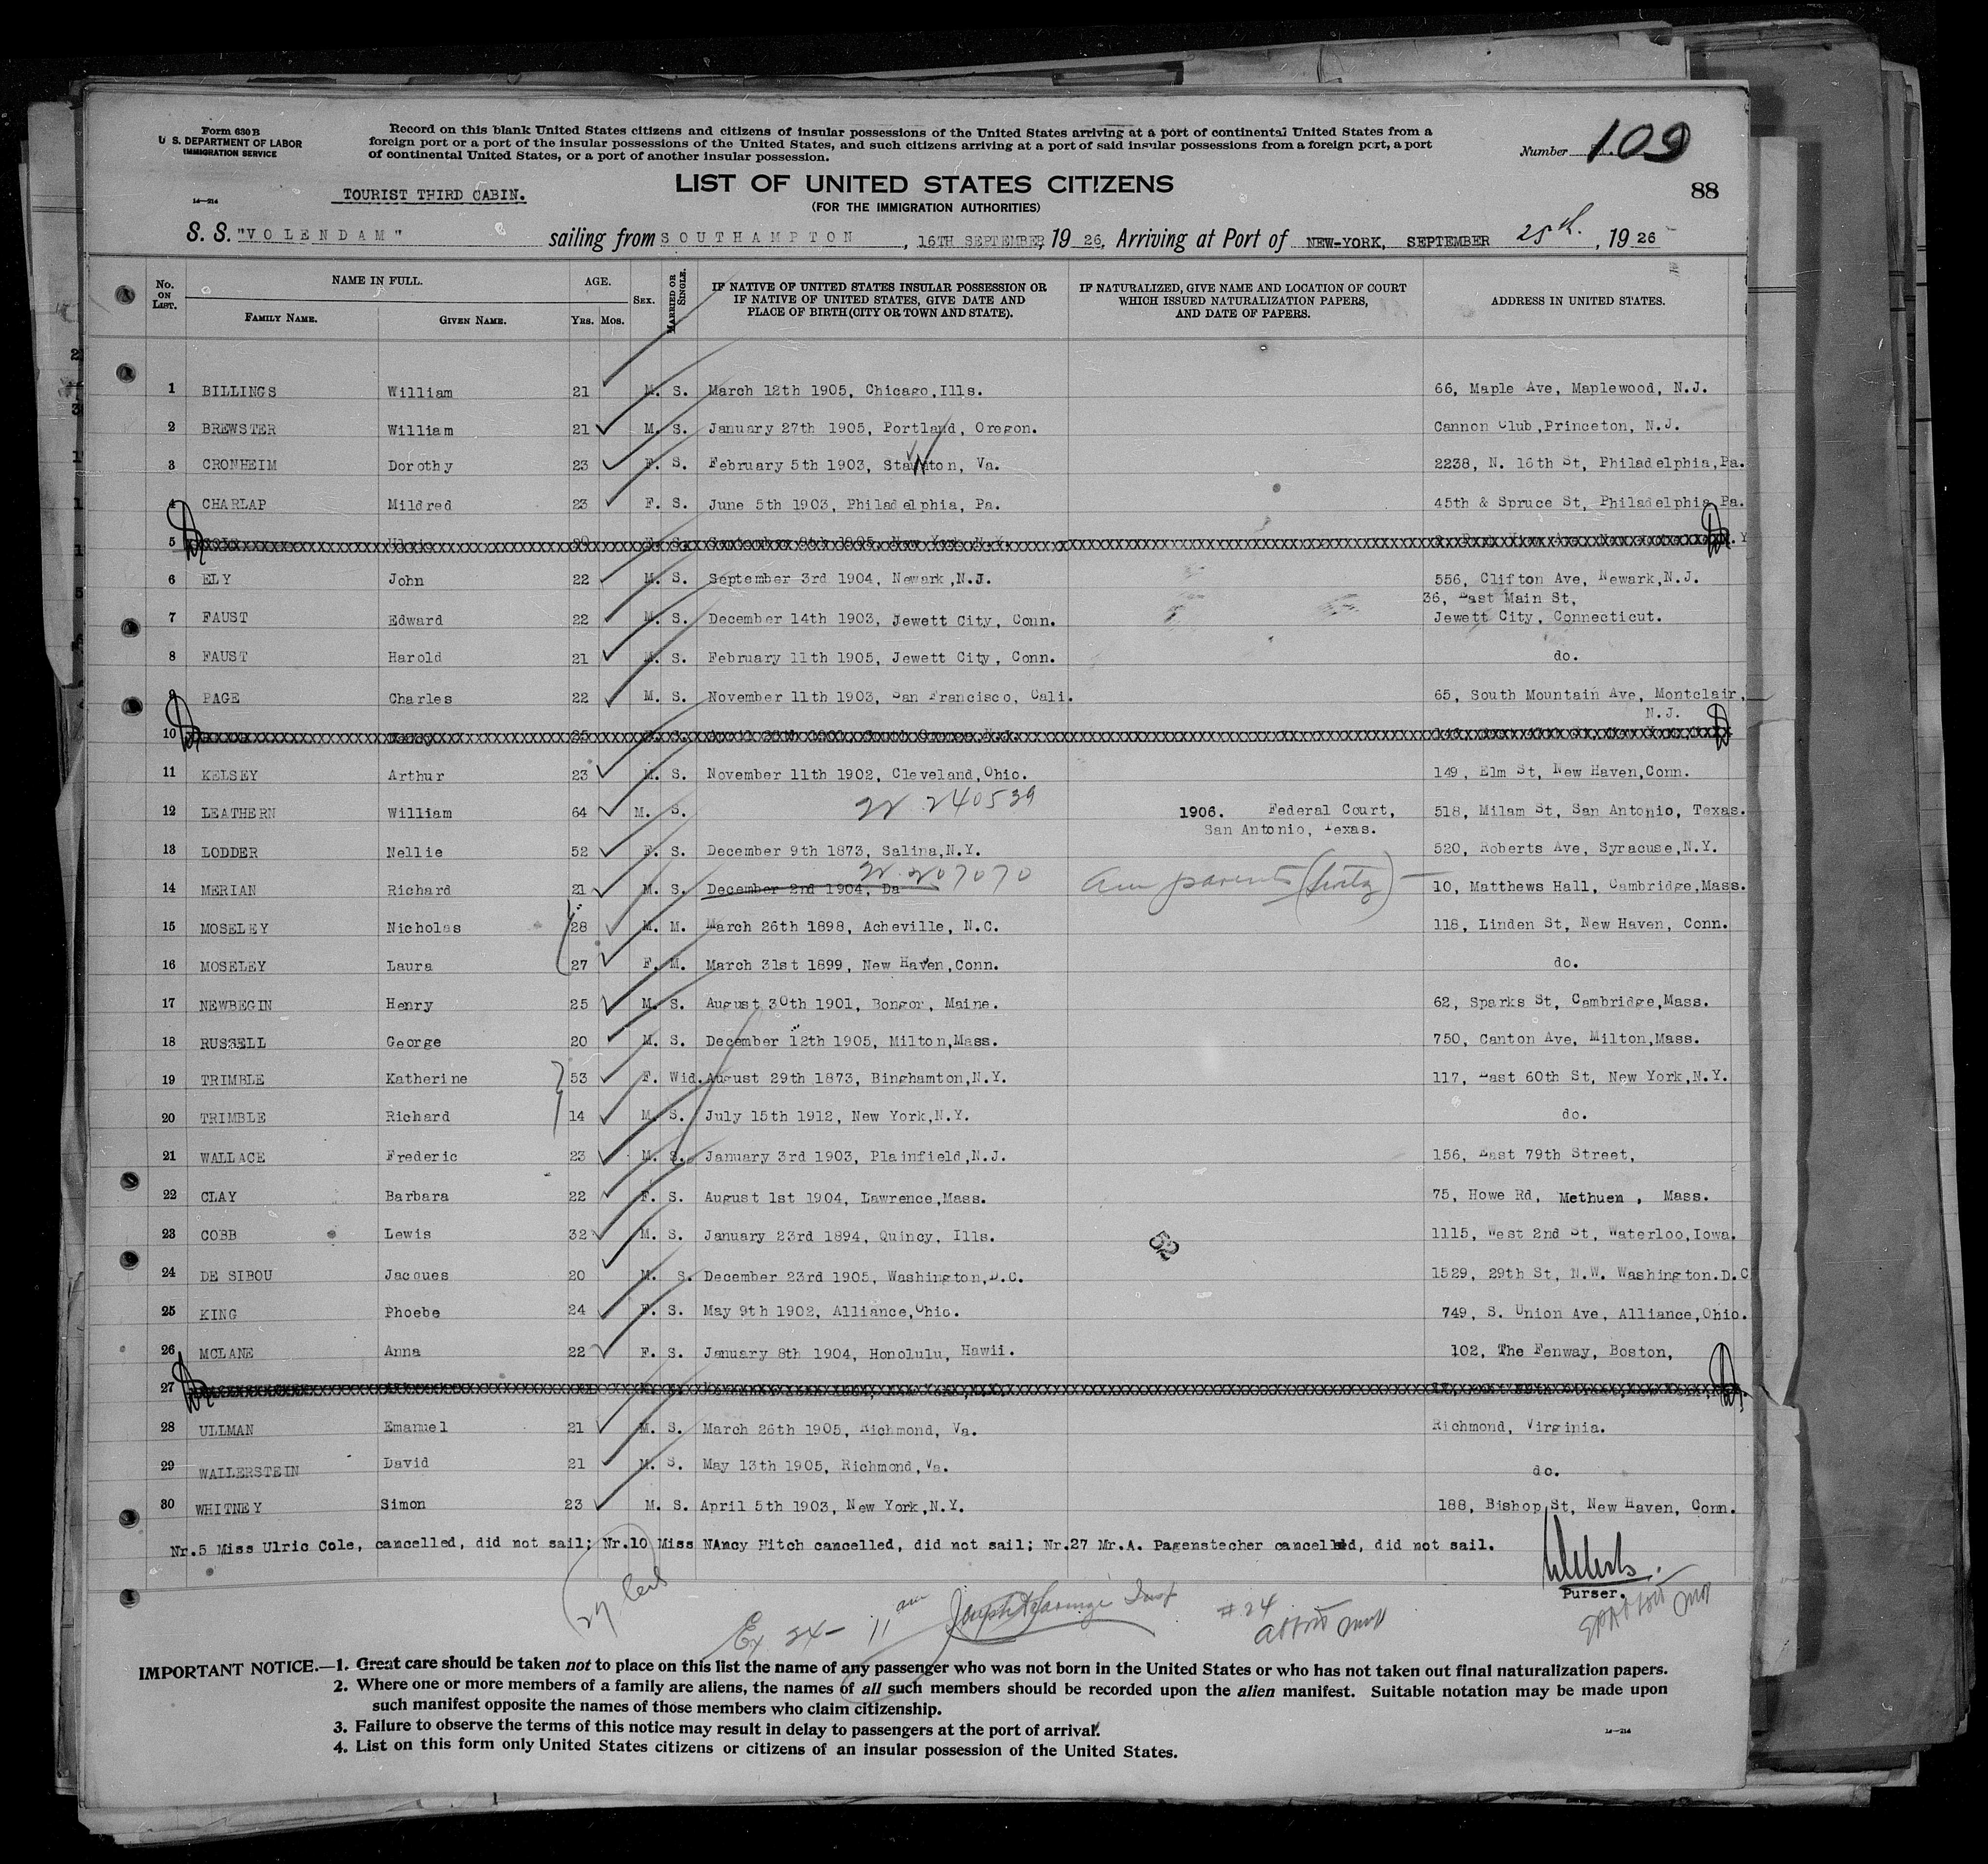 Form 630 B
U. S. DEPARTMENT OF LABOR
IMMIGRATION SERVICE
14—214
Record on this blank United States citizens and citizens of insular possessions of the United States arriving at a port of continental United States from a
foreign port or a port of the insular possessions of the United States, and such citizens arriving at a port of said insular possessions from a foreign port, a port
of continental United States, or a port of another insular possession.
Number 109
88
TOURIST THIRD CABIN.
LIST OF UNITED STATES CITIZENS
(FOR THE IMMIGRATION AUTHORITIES)
S. S. "VOLENDAM" sailing from SOUTHAMPTON, 16TH SEPTEMBER, 1926, Arriving at Port of NEW-YORK, SEPTEMBER 25th., 1926
No. ON LIST. NAME IN FULL. AGE. SEX. MARRIED OR SINGLE. IF NATIVE OF UNITED STATES INSULAR POSSESSION OR IF NATIVE OF UNITED STATES, GIVE DATE AND PLACE OF BIRTH (CITY OR TOWN AND STATE). IF NATURALIZED, GIVE NAME AND LOCATION OF COURT WHICH ISSUED NATURALIZATION PAPERS, AND DATE OF PAPERS. ADDRESS IN UNITED STATES.
FAMILY NAME. GIVEN NAME. YRS. MOS.
1 BILLINGS William 21 M. S. March 12th 1905, Chicago,Ills. 66, Maple Ave, Maplewood, N.J.
2 BREWSTER William 21 M. S. January 27th 1905, Portland, Oregon. Cannon Club,Princeton, N.J.
3 CRONHEIM Dorothy 23 F. S. February 5th 1903, Staunton, Va. 2238, N. 16th St, Philadelphia,Pa.
4 CHARLAP Mildred 23 F. S. June 5th 1903, Philadelphia, Pa. 45th & Spruce St, Philadelphia Pa.
5
6 ELY John 22 M. S. September 3rd 1904, Newark,N.J. 556, Clifton Ave, Newark,N.J.
36, East Main St,
7 FAUST Edward 22 M. S. December 14th 1903, Jewett City, Conn. Jewett City, Connecticut.
8 FAUST Harold 21 M. S. February 11th 1905, Jewett City, Conn. do.
9 PAGE Charles 22 M. S. November 11th 1903, San Francisco, Cali. 65, South Mountain Ave, Montclair,
N.J.
10 Nancy
11 KELSEY Arthur 23 M. S. November 11th 1902, Cleveland,Ohio. 149, Elm St, New Haven,Conn.
12 LEATHERN William 64 M. S. 240539 1906. Federal Court, 518, Milam St, San Antonio, Texas.
San Antonio, Texas.
13 LODDER Nellie 52 F. S. December 9th 1873, Salina,N.Y. 520, Roberts Ave, Syracuse,N.Y.
207070
14 MERIAN Richard 21 M. S. December 2nd 1904, Da parents 10, Matthews Hall, Cambridge,Mass.
15 MOSELEY Nicholas 28 M. M. March 26th 1898, Acheville, N.C. 118, Linden St, New Haven, Conn.
16 MOSELEY Laura 27 F. M. March 31st 1899, New Haven,Conn. do.
17 NEWBEGIN Henry 25 M. S. August 30th 1901, Bongor, Maine. 62, Sparks St, Cambridge,Mass.
18 RUSSELL George 20 M. S. December 12th 1905, Milton,Mass. 750, Canton Ave, Milton,Mass.
19 TRIMBLE Katherine 53 F. Wid. August 29th 1873, Binghamton,N.Y. 117, East 60th St, New York,N.Y.
20 TRIMBLE Richard 14 M. S. July 15th 1912, New York,N.Y. do.
21 WALLACE Frederic 23 M. S. January 3rd 1903, Plainfield,N.J. 156, East 79th Street,
22 CLAY Barbara 22 F. S. August 1st 1904, Lawrence,Mass. 75, Howe Rd, Methuen, Mass.
23 COBB Lewis 32 M. S. January 23rd 1894, Quincy, Ills. 1115, West 2nd St, Waterloo,Iowa.
52
24 DE SIBOU Jacques 20 M. S. December 23rd 1905, Washington,D.C. 1529, 29th St, N.W. Washington.D.C
25 KING Phoebe 24 F. S. May 9th 1902, Alliance,Ohio. 749, S. Union Ave, Alliance,Ohio.
26 MCLANE Anna 22 F. S. January 8th 1904, Honolulu, Hawii. 102, The Fenway, Boston,
27
28 ULLMAN Emanuel 21 M. S. March 26th 1905, Richmond, Va. Richmond, Virginia.
29 WALLERSTEIN David 21 M. S. May 13th 1905, Richmond,Va. do.
30 WHITNEY Simon 23 M. S. April 5th 1903, New York,N.Y. 188, Bishop St, New Haven, Conn.
Nr.5 Miss Ulric Cole, cancelled, did not sail; Nr.10 Miss NAncy Hitch cancelled, did not sail; Nr.27 Mr.A. Pagenstecher cancelled, did not sail.
Purser.
27
Ex 24— 11 am
#24
IMPORTANT NOTICE.—1. Great care should be taken not to place on this list the name of any passenger who was not born in the United States or who has not taken out final naturalization papers.
2. Where one or more members of a family are aliens, the names of all such members should be recorded upon the alien manifest. Suitable notation may be made upon
such manifest opposite the names of those members who claim citizenship.
3. Failure to observe the terms of this notice may result in delay to passengers at the port of arrival.
4. List on this form only United States citizens or citizens of an insular possession of the United States.
14—214